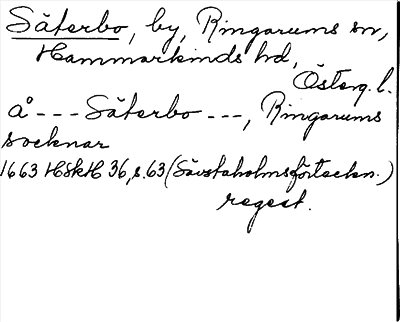 Säterbo, by, Ringarums sn,
Hammarkinds hd,
Österg. l.
å --- Säterbo ---, Ringarums
socknar
1663 HSkH 36, s. 63 (Sävstaholmsförteckn.)
regest.